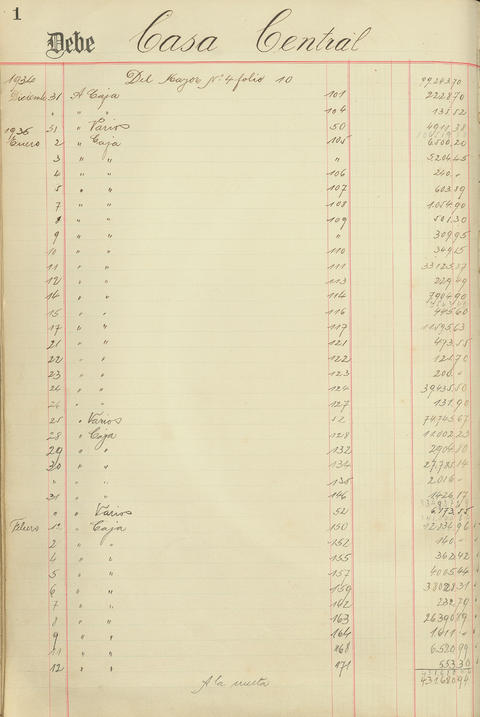 1
Debe Casa Central
1934 Del Mayor Nº 4 folio 10
Diciembre 31 A Caja 101 22270
" " " 104 13552
1935 31 " Varios 50
Enero 2 " Caja 105 6500,20
3 " " " 5206,45
4 " " 106 240,-
5 " " 107 603,89
7 " " 108 1.054,90
8 " " 109 501,30
9 " " " 309,95
10 " " 110 349,15
11 " " 111
12 " " 113 229,49
14 " " 114 7904,90
15 " " 116 445,60
17 " " 117 11595,63
21 " " 121 473,55
22 " " 122 12,70
23 " " 123 200,-
24 " " 124 39435,50
26 " " 127 131,90
25 " Varios 52 74745,67
28 " Caja 128 11002,23
29 " " 132 2904,80
30 " " 134 27.785,14
" " " 135 2.016,-
31 " " 146 1426,17
" " Varios 52 6173,55
Febrero 1º " Caja 150 12236,96
2 " " 152 160,-
4 " " 155 362,42
5 " " 157 4005,44
6 " " 159 3802,31
7 " " 162 232,79
8 " " 163 2639,89
9 " " 164 1.611,-
11 " " 168 6580,99
12 " " 171 553,30
A la vuelta 431680,94